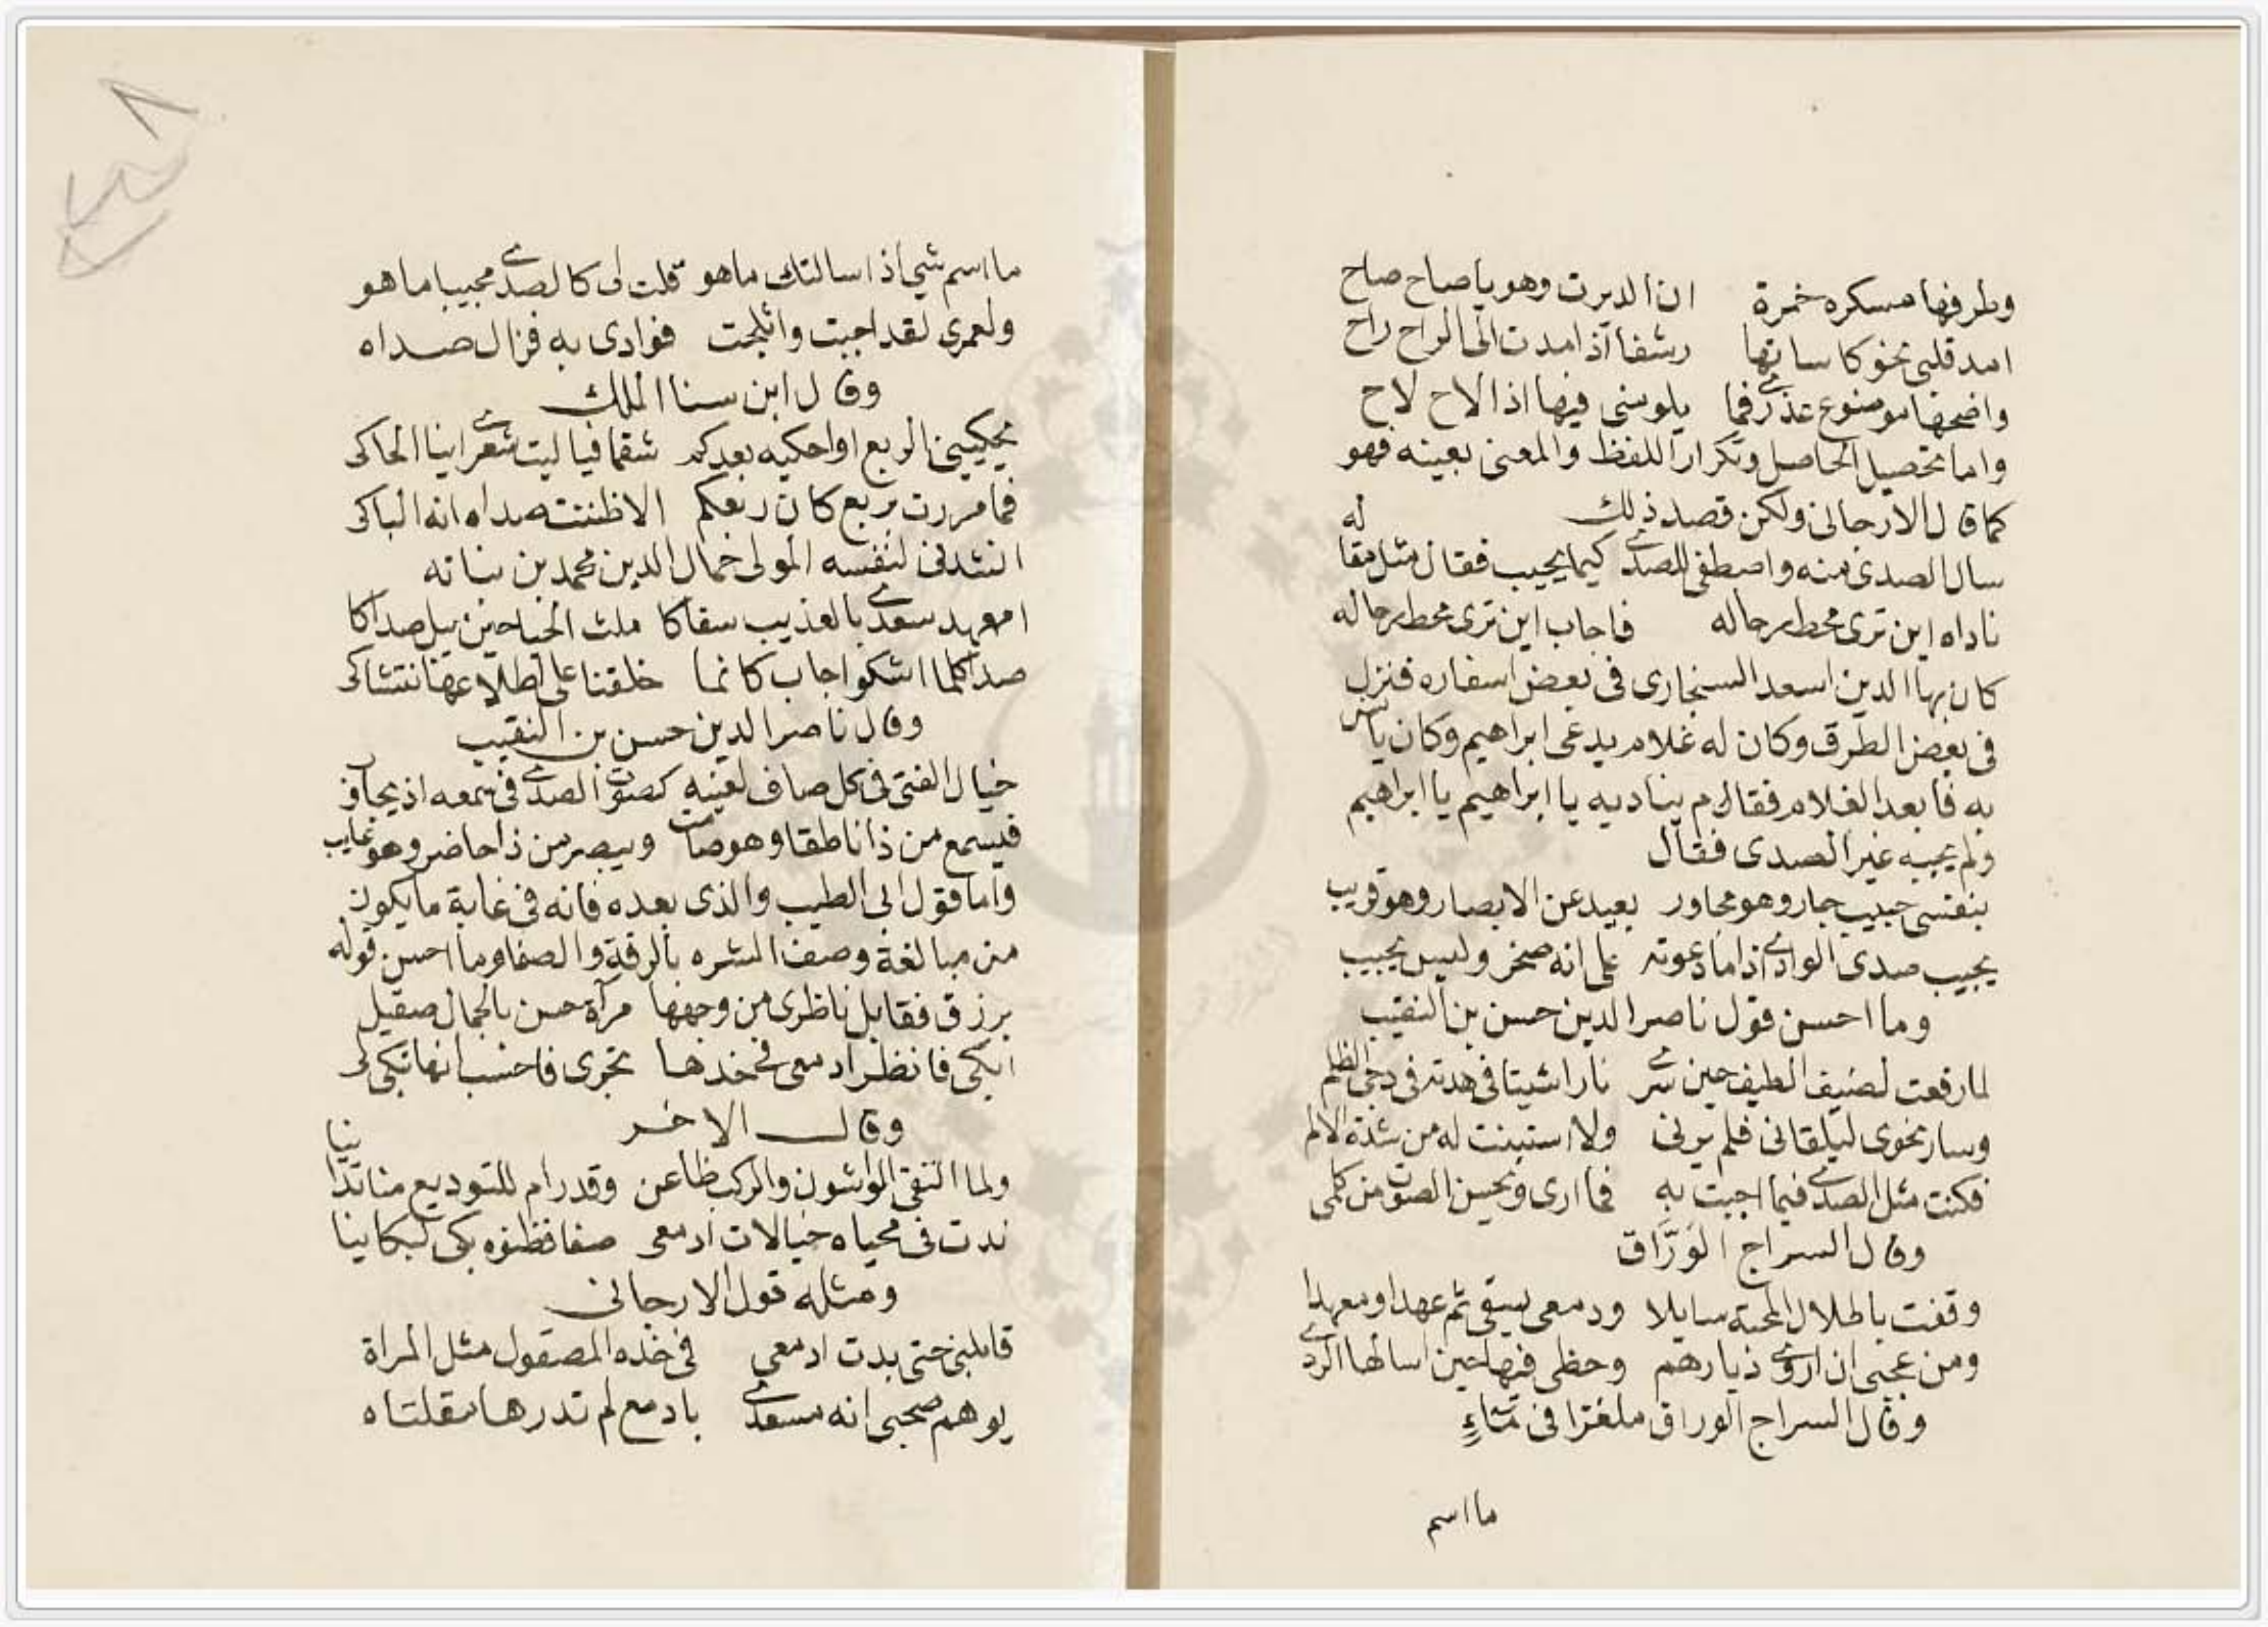 وطرفها مسكره خمرة ان الديرت وهو يا صاح صاح
امد قلبي نحو كاساتها رشفا اذا مدت الى الراح راح
واضحها موضوع عذرى فما يلومنى فيها اذا لاح لاح
واما تحصيل الحاصل وتكرار اللفظ والمعنى بعينه فهو
كما قال الارجانى ولكن قصد ذلك
سال الصدى عنه واصطفى للصدى كيما يجيب فقال مثل مقاله
ناداه اين ترى محط رحاله فاجاب اين ترى محط رحاله
كان بها الدين اسعد السنجارى فى بعض اسفاره فنزل
فى بعض الطرق وكان له غلام يدعى ابراهيم وكان يانس
به فابعد الغلام فقام يناديه يا ابراهيم يا ابراهيم
ولم يجبه غير الصدى فقال
بنفسى حبيب جار وهو مجاور بعيد عن الابصار وهو قريب
يجيب صدى الوادى اذا ما دعوته على انه صخر وليس يجيب
وما احسن قول ناصر الدين حسن بن النقيب
لما رفعت لضيف الطيف حين سرى نارا شيتا فى هدته فى دجى الظلم
وسار نحوى ليلقانى فلم يرنى ولا استبنت له من شدة الالم
فكنت مثل الصدى فيما اجبت به فما ارى ويحسن الصوت من كلمى
وقال السراج الوَرَّاق
وقفت باطلال الاحبة سايلا ودمعى يسقى ثم عهدا ومعهدا
ومن عجبى ان اروى ديارهم وحظى فيها حين اسالها الردى
وقال السراج الوراق ملغزا فى مثاءٍ
ما اسم
٨
ما اسم شي اذا سالتك ماهو قلت لى كالصدى مجيبا ما هو
ولعمرى لقد اجبت واثلجت فوادى به فزال صداه
وقال ابن سنا الملك
يحكيني الربع او احكيه بعدكم شقما فياليت شعرى اينا الحاكى
فما مررت بربع كان ربعكم الا ظننت صداه انه الباكى
انشدنى لنفسه المولى جمال الدين محمد بن نباته
امعهد سعدى بالعذيب سقاكا ملث الحيا حين يبل صداكا
صدا كلما اشكو اجاب كانما خلقنا على اطلاعها نتشاكى
وقال ناصر الدين حسن بن النقيب
خيال الفتى فى كل صاف لعينه كصوت الصدى فى سمعه اذ يجاوب
فيسمع من ذا ناطقا وهو صامت ويبصر من ذا حاضر وهو غايب
واما قول ابى الطيب والذى بعده فانه فى غاية ما يكون
من مبالغة وصف البشره بالرقة والصفا وما احسن قوله
برزق فقابل ناظرى من وجهها مرآة حسن بالجمال صقيل
ابكى فانظر ادمعى فى خدها تجرى فاحسب انها تبكى لى
وقال الاخر
ولما التقى الواشون والركب ظاعن وقد رام للتوديع منا تدانيا
بدت فى محياه خيالات ادمعى صفا فظنوه بكى لبكاينا
ومثله قول الارجانى
قابلنى حتى بدت ادمعى فى خده المصقول مثل المراة
يوهم صحبى انه مسعدى بادمع لم تدرها مقلتاه